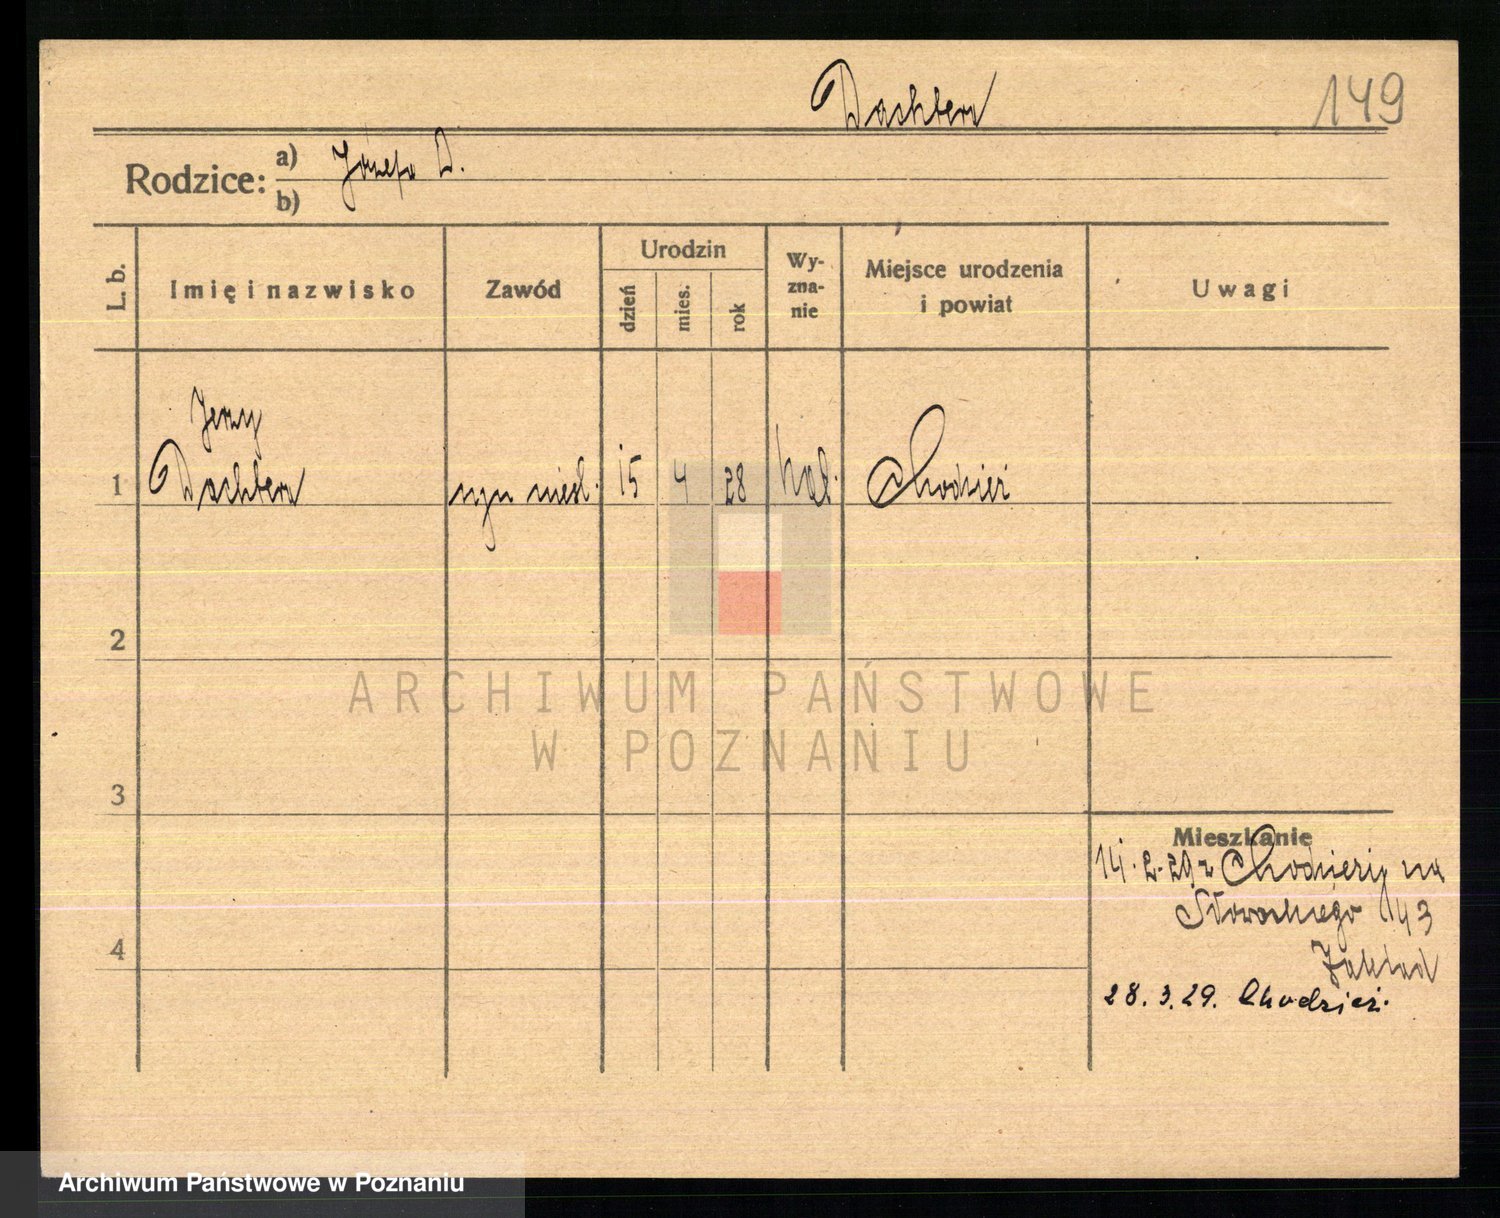 Dachtera
149
Rodzice:
a) Józefa D.
b)
L. b.
Imię i nazwisko
Zawód
Urodzin
dzień
mies.
rok
Wy-
zna-
nie
Miejsce urodzenia
i powiat
Uwagi
Jerzy
1 Dachtera syn nieśl. 15 4 28 kat. Chodzież
2
3
4
Mieszkanie
14.2.29 z Chodzieży na
43
Zakład
28.3.29. Chodzież.
ARCHIWUM PAŃSTWOWE
W POZNANIU
Archiwum Państwowe w Poznaniu